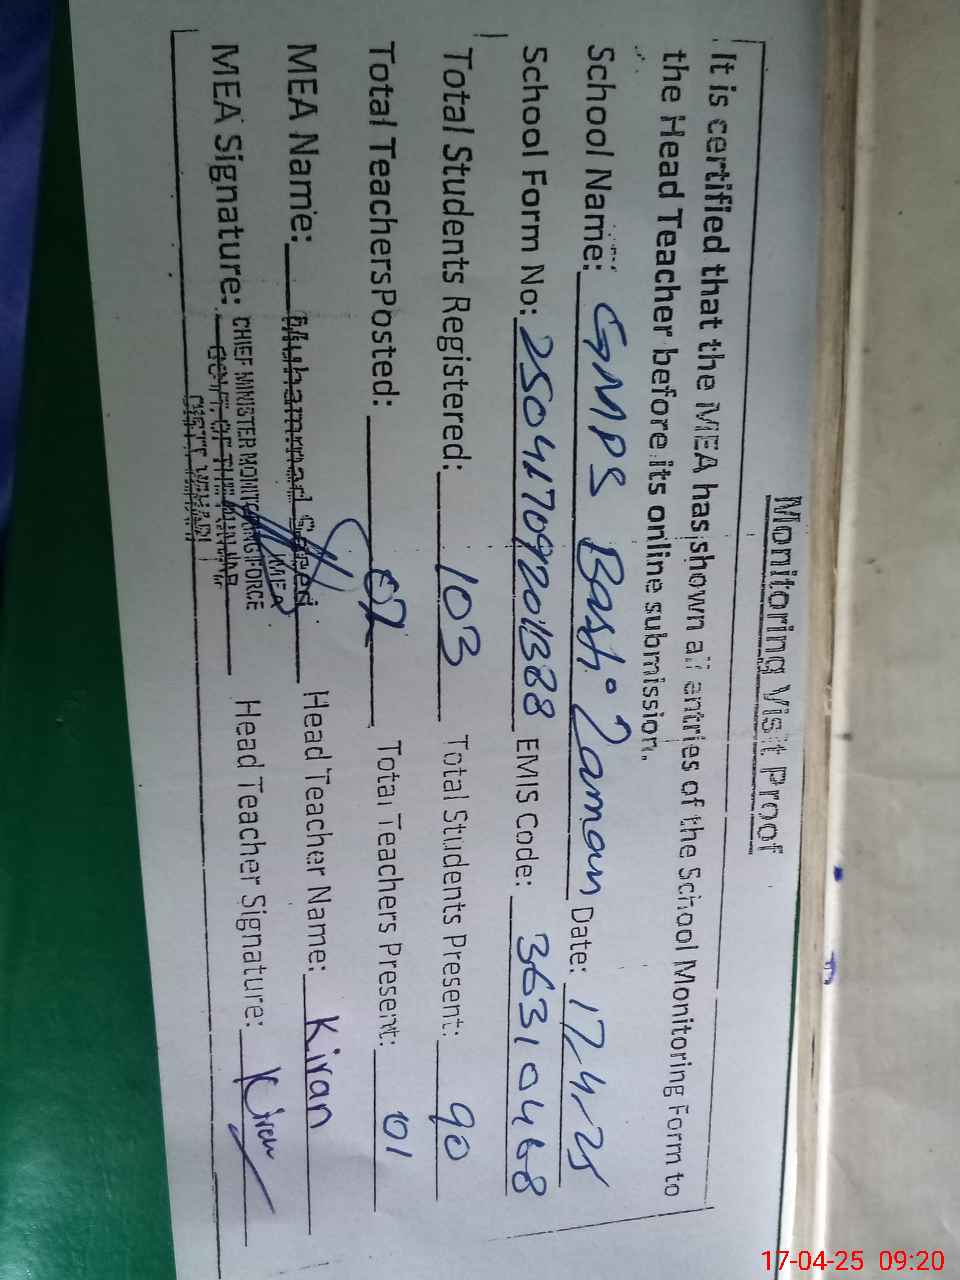 Monitoring Visit Proof
It is certified that the MEA has shown all entries of the School Monitoring Form to
the Head Teacher before its online submission.
School Name: GMPS Basti Zaman Date: 17-4-25
School Form No: 25041709201388 EMIS Code: 36310468
Total Students Registered: 103 Total Students Present: 90
Total TeachersPosted: 02 Total Teachers Present: 01
MEA Name: Muhammad Saeed Head Teacher Name: Kiran
MEA
MEA Signature: CHIEF MINISTER MONITORING FORCE Head Teacher Signature: Kiran
GOVT. OF THE PUNJAB
DISTT. VEHARI
17-04-25 09:20